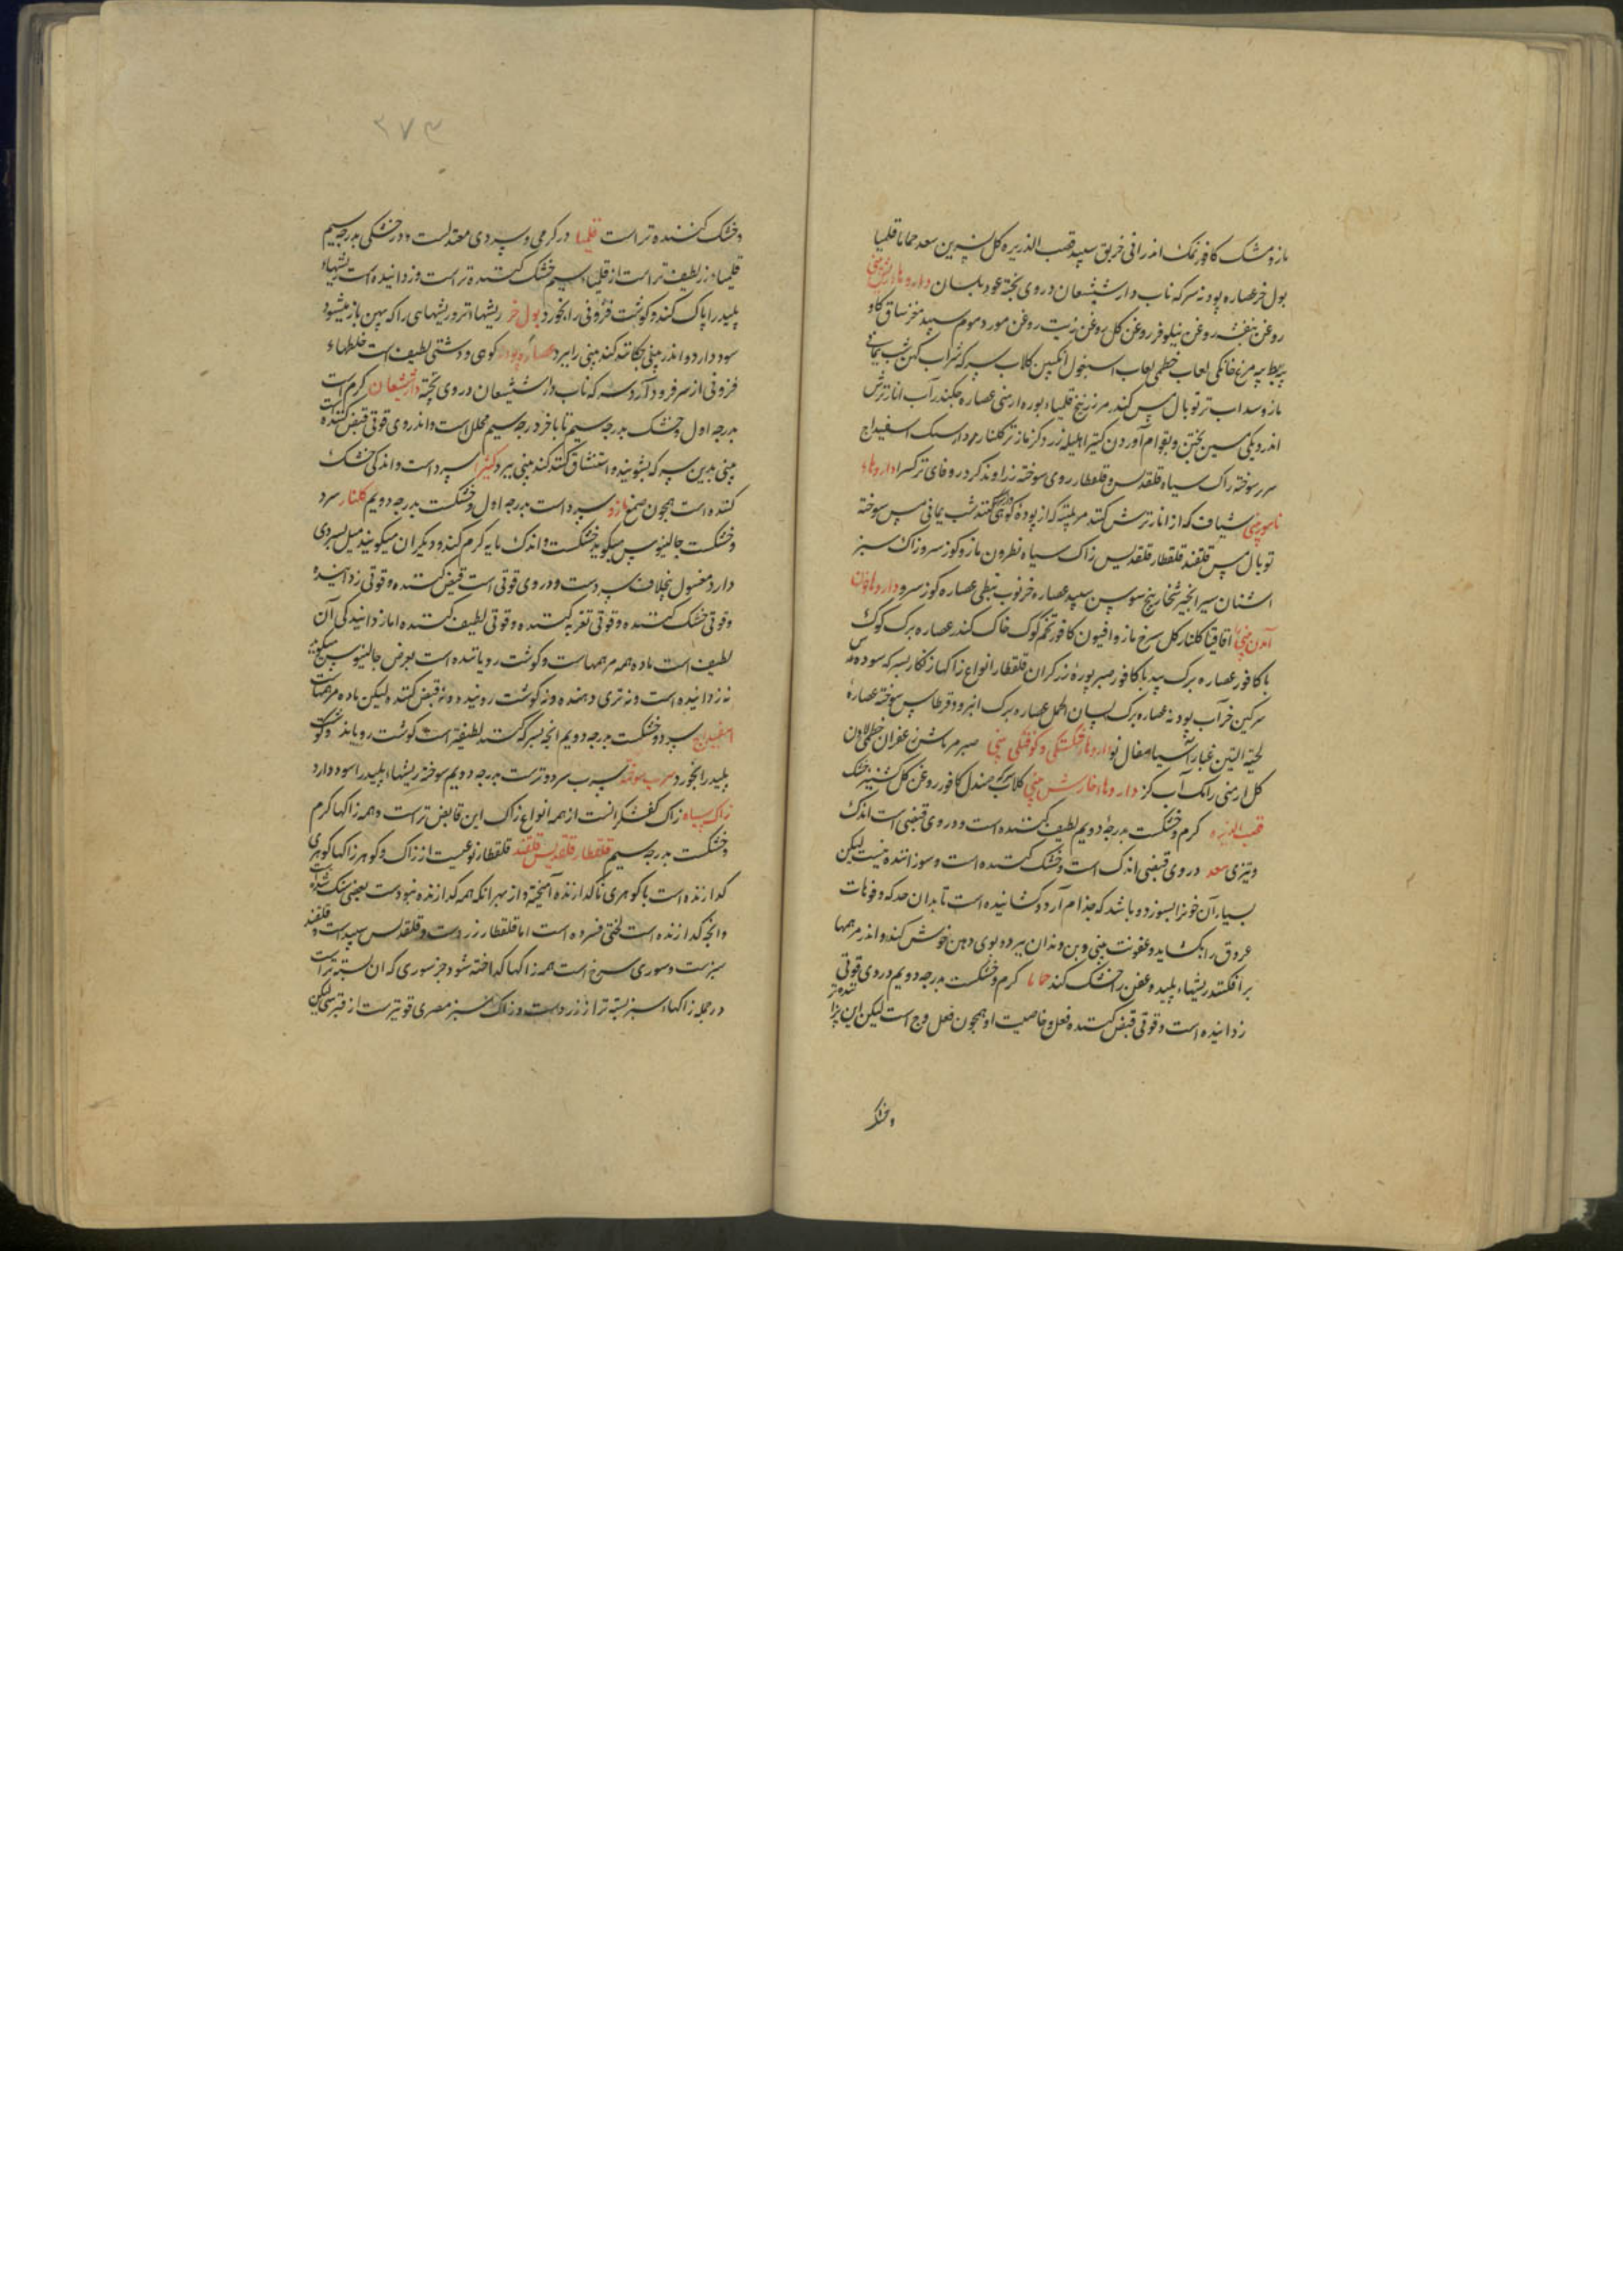 مازو مشک کافور نمک اندرانی خربق سپید قصب الذریره کل نسرین سعد حماما قلمیا
بول خر عصاره پودنه سرکه ناب دارشیشعان دردی پخته عود بلسان داروها ریش بینی
روغن بنفشه روغن نیلوفر روغن کل روغن زیت روغن مورد موم سپید مغز ساق کاو
پیه بط پیه مرغ خانکی لعاب خطمی لعاب اسبغول انکبین کلاب سرکه شراب کهن شب یمانی
مازو سداب تر توبال مس کندر مر زرنیخ قلمیاء بوره ارمنی عصاره چکندر آب انار ترش
اندر دیکی مسین پختن و بقوام آوردن کتیرا هلیله زرد کزمازک کلنار مرداسنک اسفیداج
سرب سوخته زاک سیاه قلقدیس و قلقطار روی سوخته زراوند کرد داروهاء
ناسور بینی شیاف که از انار ترش کنند مر پلیته که از پوده کوهی کنند شب یمانی مس سوخته
توبال مس قلقند قلقطار قلقدیس زاک سیاه نطرون مازو کوز سرو زاک سبز
اشنان سیر انجیر بیخ سوسن سپید عصاره خرنوب نبطی عصاره کوز سرو داروها خون
آمدن بینی اقاقیا کلنار کل سرخ مازو افیون کافور تخم کوک خاک کندر عصاره برک کوک
با کافور عصاره برک بید با کافور صبر بوره زرکران قلقطار انواع زاکها زنکار بسرکه سوده
سرکین خر آب پودنه عصاره برک لسان الحمل عصاره برک انبرود قرطاس سوخته عصاره
لحیة التیس غبار آسیا سفال نو داروها شکستکی و کوفتکی بینی صبر مر ماش زعفران خطمی لادن
کل ارمنی رامک آب کز داروها خارش بینی کلاب سرکه صندل کافور روغن کل کشنیز خشک
قصب الذریره کرم و خشکست بدرجهٔ دویم لطیف کننده است و در وی قبضی است اندک
و تیزی سعد در وی قبضی اندک است و خشک کننده است و سوزاننده نیست لیکن
بسیار آن خونرا بسوزد و باشد که جذام آرد و کشاینده است تا بدان حد که وفوهات
عروق را بکشاید و عفونت بینی و بن دندان ببرد و بوی دهن خوش کند و اندر مرهمها
برافکنند ریشهاء پلید و عفن را خشک کند حماما کرم و خشکست بدرجه دویم در وی قوتی
زداینده است و قوتی قبض کننده فعل و خاصیت او همچون فعل وج است لیکن این پزاننده تر
و خشک
۳۷۳
و خشک کننده تر است قلمیا در کرمی و سردی معتدلست و در خشکی بدرجه سیم
قلمیاء زر لطیف تر است از قلمیاء سیم خشک کننده تر است و زداینده است ریشهاء
پلید را پاک کند و کوشت فزونی را بخورد بول خر ریشهاء تر و ریشهایی را که پهن باز میشود
سود دارد و اندر بینی چکانند کند بینی را ببرد عصاره پودنه کوهی و دشتی لطیف است خلطهاء
فزونی از سر فرود آرد سرکه ناب دارشیشعان دردی پخته دارشیشعان کرم است
بدرجه اول و خشک بدرجه سیم تا باخر درجه سیم محلل است و اندر وی قوتی قبض کننده است
بینی بدین سرکه بشویند و استنشاق کنند کند بینی ببرد کتیرا سرد است و اندکی خشک
کننده است همچون صمغ مازو سرد است بدرجه اول و خشکست بدرجه دویم کلنار سرد
و خشکست جالینوس میکوید خشکست و اندک مایه کرم کند و دیکران میکویند میل بسردی
دارد مغسول بخلاف سردست و در وی قوتی است قبض کننده و قوتی زداینده
و قوتی خشک کننده و قوتی تغریه کننده و قوتی لطیف کننده اما زدانیدکی آن
لطیف است ماده همه مرهمهاست و کوشت رویاننده است بعرض جالینوس میکوید
نه زداینده است و نه تری دهنده و نه کوشت روینده و نه قبض کننده لیکن ماده مرهمهاست
اسفیداج سرد و خشکست بدرجه دویم انچه بسرکه کنند لطیفتر است کوشت رویاند و کوشت
پلید را بخورد سرب سوخته سرب سرد و ترست بدرجه دویم سوخته ریشهاء پلید را سود دارد
زاک سیاه زاک کفشکرانست از همه انواع زاک این قابض تر است و همه زاکها کرم
و خشکست بدرجه سیم قلقطار قلقدیس قلقند قلقطار نوعیست از زاک و کوهر زاکها کوهری
کدازنده است با کوهری ناکدازنده آمیخته و از بهر انکه همه کدازنده نبودست بعضی سنک شده است
و انچه کدازنده است لختی فسرده است اما قلقطار زردست و قلقدیس سپید است و قلقند
سبزست و سوری سرخ است همه زاکها کداخته شود جز سوری که ان بسته تر است
در جمله زاکهاء سبز بسته تر از زرد است و زاک سبز مصری قویترست از قبرسی لیکن